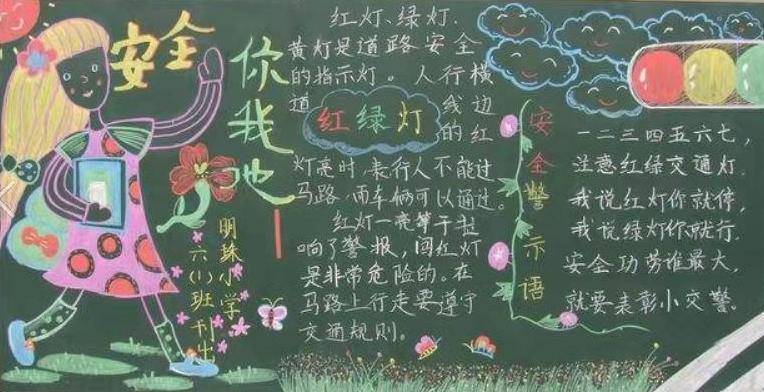 安全
你我他
明珠小学
六(1)班刊出
红灯、绿灯、
黄灯是道路安全
的指示灯。人行横
道线边
红绿灯
的红
灯亮时,表行人不能过
马路,而车辆可以通过。
红灯一亮等于
响了警报,闯红灯
是非常危险的。在
马路上行走要遵守
交通规则。
安全警示语
一二三四五六七,
注意红绿交通灯.
我说红灯你就停,
我说绿灯你就行.
安全功劳谁最大,
就要表彰小交警。